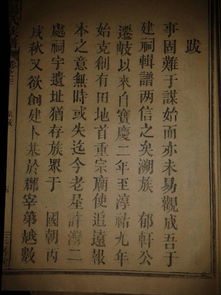 跋
事固難于謀始而亦未易觀成吾于
建祠輯譜兩信之矣溯族　郁軒公
遷岐以來自寶慶二年至淳祐九年
始克創有田地首重宗廟使追遠報
本之意無時或失迄今老星許灣二
處祠宇遺址猶存族眾于　國朝丙
戌秋又欲創建卜基於郡宰第越數